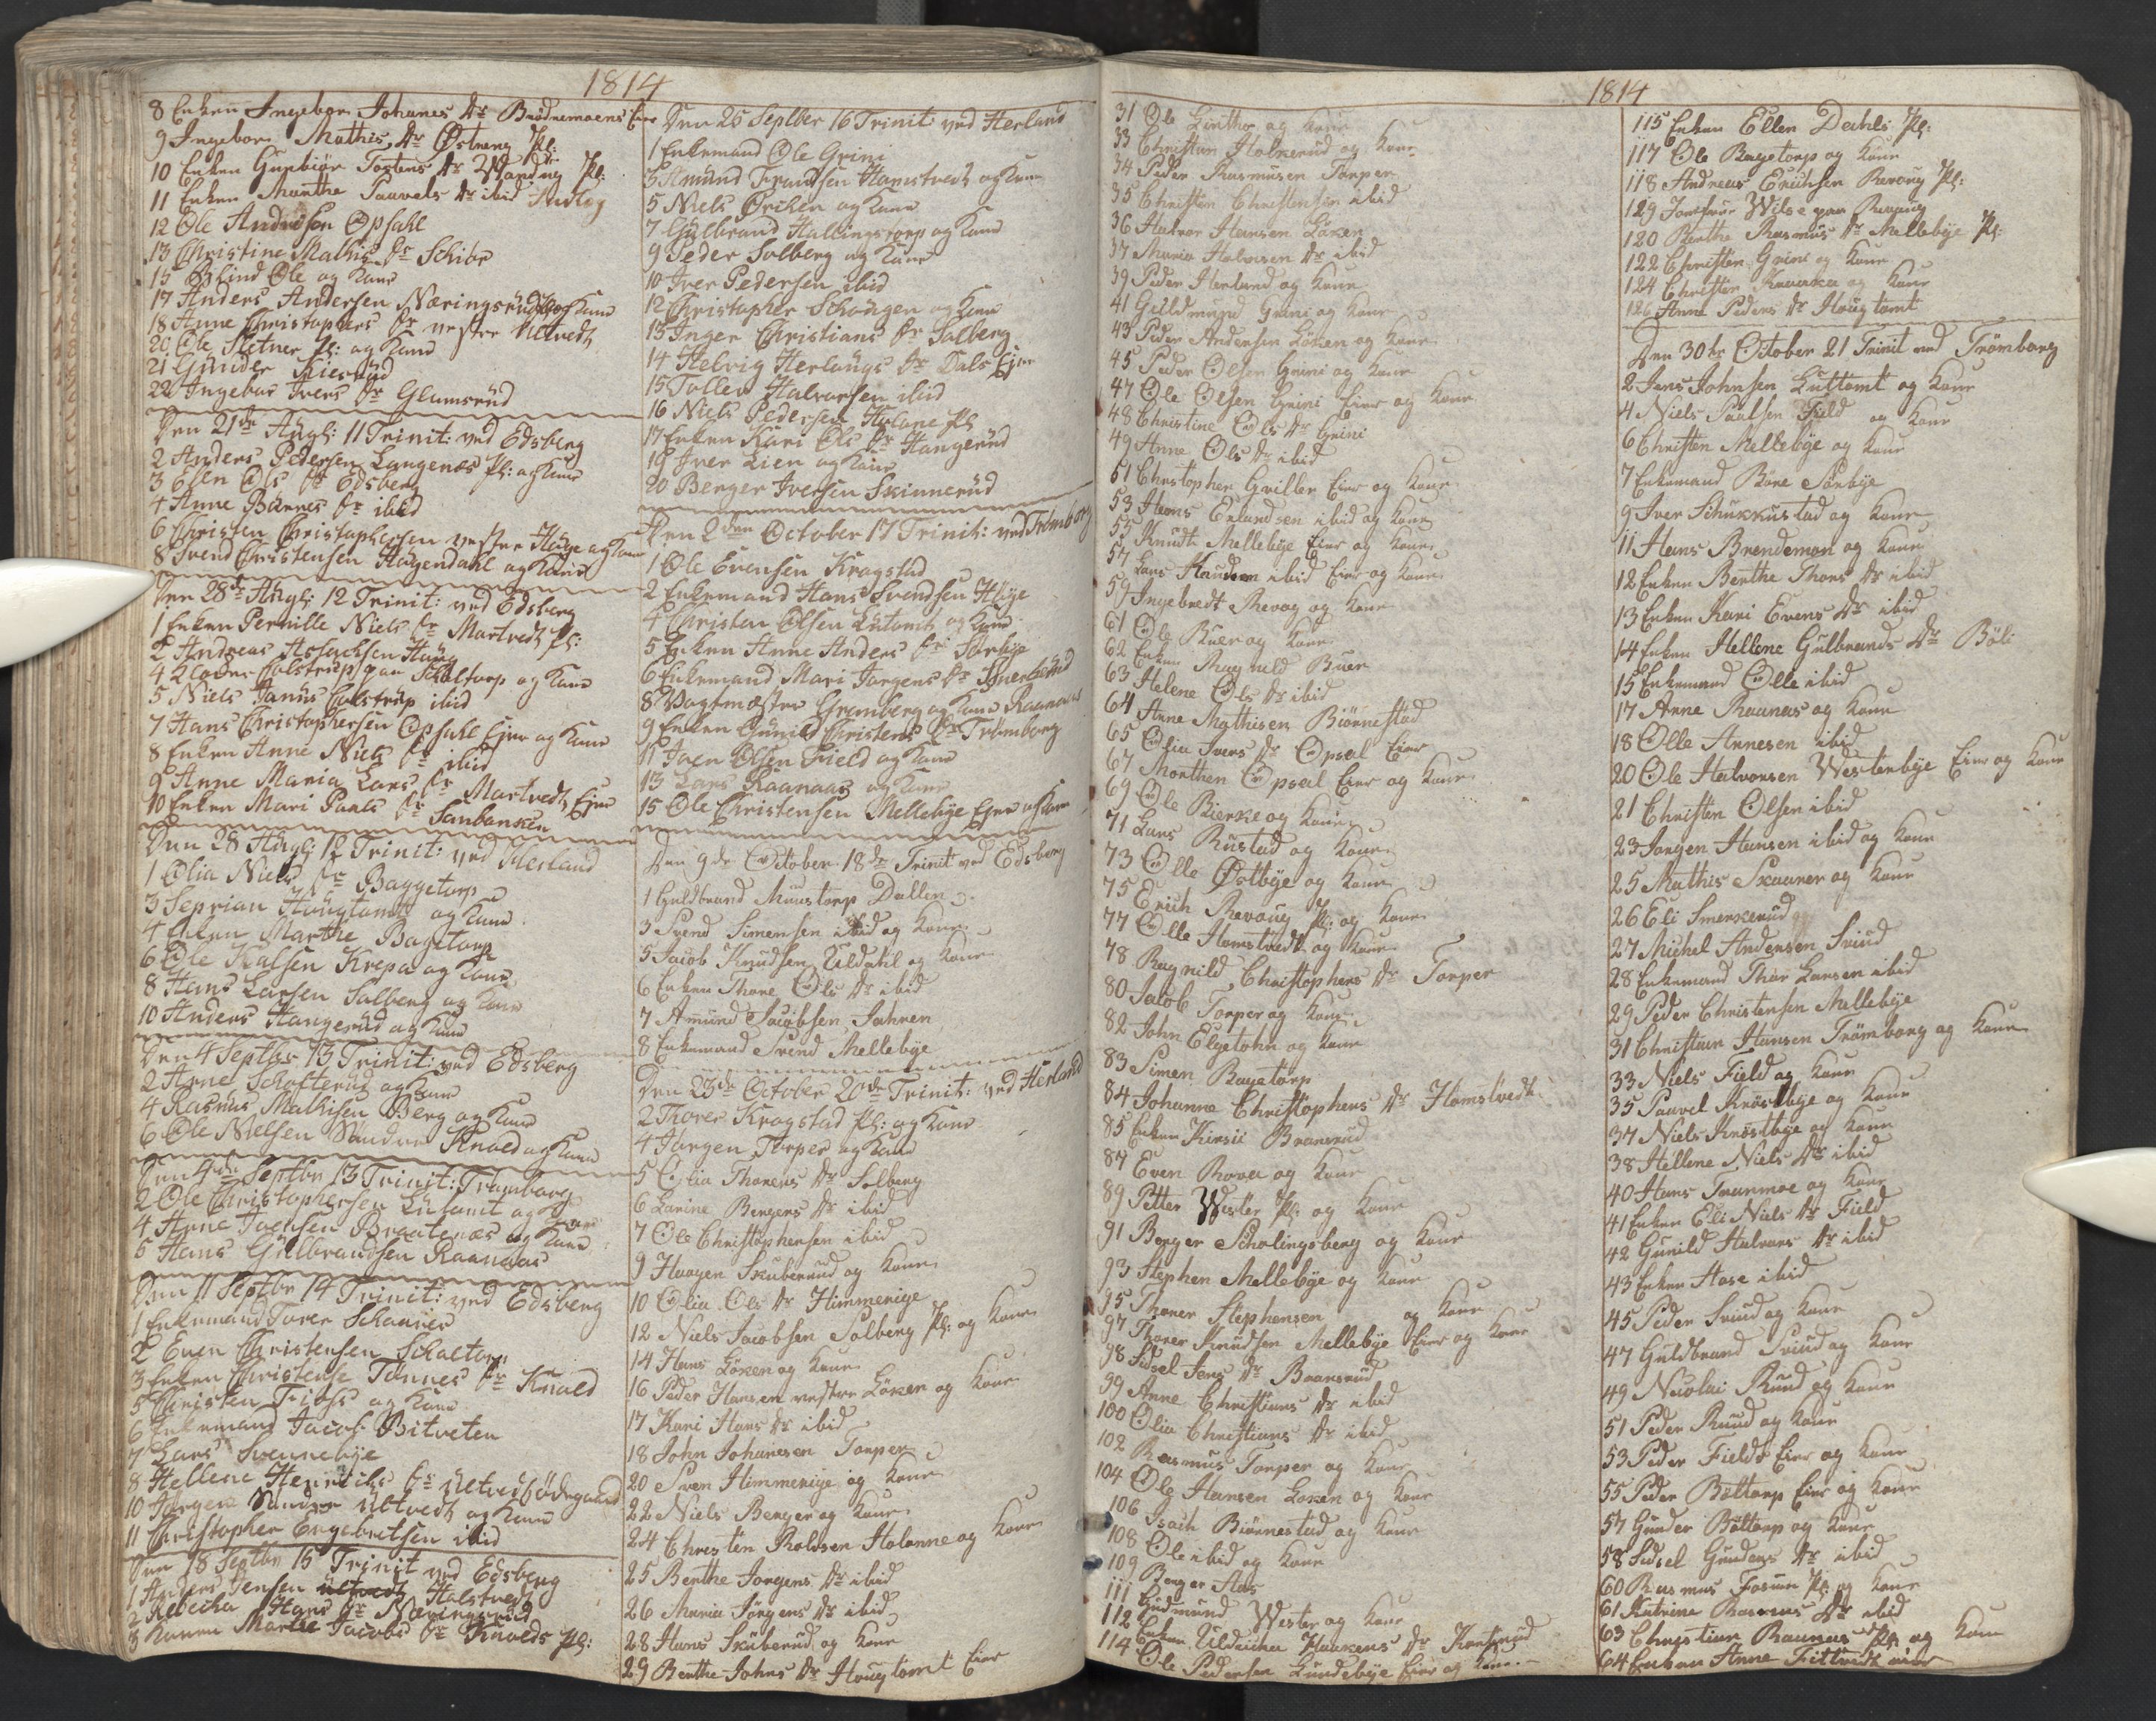 1814
8 Enken Ingebor Johanes dr Brödremoens Eier
9 Ingebor Mathis dr Østreng Pl:
10 Enken Gunbiör Tostens dr Pl:
11 Enken Marthe Paavels dr ibid
12 Ole Andersen Opsahl
13 Christine Mathis dr Schibr
15 Blind Ole og Kone
17 Anders Andersen Næringsrud og Kone
18 Anne Christophers dr vestre Ultvedt
20 Ole Sletner Pl: og Kone
21 Gunder
22 Ingebor Ivers dr Glamsrud
Den 21de Augs: 11 Trinit: ved Edsberg
2 Anders Pedersen Langenæs Pl: og Kone
3 Elen Ols dr Edsberg
4 Anne Bannes dr ibid
6 Christen Christophersen vestre Huge og Kone
8 Svend Christensen Haugendahl og Kone
Den 28de Augs: 12 Trinit: ved Edsberg
1 Enken Pernille Niels dr Martvedt Pl:
2 Andreas Haug
4 Colstrup paa Schaltorp og Kone
5 Niels Janus Colstrup ibid
7 Hans Christophersen Opsahl Ejer og Kone
8 Enken Anne Niels dr ibid
9 Anne Maria Lars dr Martvedt Ejer
10 Enken Mari Paals dr Sanbanken
Den 28 Augs: 12 Trinit: ved Herland
1 Olia Niels dr Baggetorp
3 Seprian Haugtomt og Kone
4 Enken Marthe Bagetorp
6 Ole Kalsen Krepa og Kone
8 Hans Larsen Salberg og Kone
10 Anders Hangerud og Kone
Den 4 Septbr 13 Trinit: ved Edsberg
2 Arne Schofterud og Kone
4 Rasmus Mathisen Berg og Kone
6 Ole Nielsen Søndre Knold og Kone
Den 4de Septbr 13 Trinit: Tramborg
2 Ole Christophersen Lutomt og Kone
4 Arne Braatenæs og Kone
5 Hans Gulbrandsen Raanaas
Den 11 Septbr 14 Trinit: ved Edsberg
1 Enkemand Torer Schauer
2 Even Christensen Schaltorp
3 Enken Christense Tönnes dr Knold
5 Christen og Kone
6 Enkemand Jacob Bitveten
7 Lars Svennebye
8 Hellene Henrichs dr Ultvedtødegaard
10 Jørgen Søndre Ultvedt og Kone
11 Christopher Engebretsen ibid
Den 18 Septbr 15 Trinit ved Edsberg
1 Anders Jensen Halstvedt
2 Rebecka Hans dr Næringsrud
3 Konen Marthe Jacobs dr Knolds Pl:
Den 25 Septber 16 Trinit: ved Herland
1 Enkemand Ole Grini
3 Amund Frandsen Hamstvedt og Kone
5 Niels Øriken og Kone
7 Gulbrand Hallingstorp og Kone
9 Peder Solberg og Kone
10 Iver Pedersen ibid
12 Christopher Schougen og Kone
13 Inger Christians dr Salberg
14 Helvig Herlaugs dr Dals Ejer
15 Tollev Halvorsen ibid
16 Niels Pedersen Pl
17 Enken Kari Ols dr Hangerud
19 Iver Lien og Kone
20 Berger Iversen Skinnerud
Den 2den October 17 Trinit: ved Trømborg
1 Ole Evensen Kragstad
2 Enkemand Hans Svendsen Huge
4 Christen Olsen Lutomt og Kone
5 Enken Anne Anders dr Sørbye
6 Enkemand Mari Jørgens dr
8 Vagtmæster Gremberg og Kone Raanaas
9 Enken Gunild Christens dr Trømborg
11 Olsen Field og Kone
13 Lars Raanaas og Kone
15 Ole Christensen Mellebye Ejer og Kone
Den 9de October 18de Trinit ved Edsberg
1 Guldbrand Muustorp Dallen
3 Svend Simensen ibid og Kone
5 Jacob Knudsen Uldahl og Kone
6 Enken Thore Ols dr ibid
7 Amund Jacobsen Jahren
8 Enkemand Svend Mellebye
Den 23de October 20de Trinit: ved Herland
2 Thorer Kragstad Pl: og Kone
4 Jørgen Torper og Kone
5 Olia Thorers dr Solberg
6 Larine Bergers dr ibid
7 Ole Christophersen ibid
9 Haagen Skuberud og Kone
10 Olia Ols dr Himmerige
12 Niels Jacobsen Solberg Pl: og Kone
14 Hans Løken og Kone
16 Peder Hansen vestre Løken og Kone
17 Kari Hans dr ibid
18 John Johanesen Torper
20 Sven Himmerige og Kone
22 Niels Berger og Kone
24 Christen Roldsen Holanne og Kone
25 Berthe Jorgens dr ibid
26 Maria Jörgens dr ibid
28 Hans Skuberud og Kone
29 Berthe Johns dr Hougtomt Eier
1814
31 Ole og Kone
33 Christian Holkerud og Kone
34 Peder Rasmusen Torper
35 Christen Christensen ibid
36 Halvor Hansen Løken
37 Maria Halvorsen dr ibid
39 Peder Herland og Kone
41 Guldmund Grini og Kone
43 Peder Andersen Løken og Kone
45 Peder Olsen Grini og Kone
47 Ole Olsen Grini Eier og Kone
48 Christine Ols dr Grini
49 Anne Ols dr ibid
51 Christopher Gviller Eier og Kone
53 Hans Erlandsen ibid og Kone
55 Knudt Mellebye Eier og Kone
57 Lars Knudsen ibid Eier og Kone
59 Ingebredt Revog og Kone
61 Ole Buer og Kone
62 Enken Magnild Buer
63 Helene Ols dr ibid
64 Anne Mathisen Biørnestad
65 Olia Ivers dr Opsal Eier
67 Morthen Opsal Eier og Kone
69 Ole Bierke og Kone
71 Lars Rustad og Kone
73 Olle Østbye og Kone
75 Erich Revoug Pl: og Kone
77 Olle Homstvedt og Kone
78 Ragnild Christophers dr Torper
80 Jacob Torper og Kone
82 John Elgetohn og Kone
83 Simen Bagetorp
84 Johanne Christophers dr Homstvedt
85 Enken Kirsti Branerud
87 Even Rova og Kone
89 Petter Wister Pl: og Kone
91 Berger Scholingsberg og Kone
93 Stephen Mellebye og Kone
95 Thorer Stephensen og Kone
97 Thorer Knudsen Mellebye Eier og Kone
98 Sidsel Jens dr Baansrud
99 Anne Christians dr ibid
100 Olia Christians dr ibid
102 Rasmus Torper og Kone
104 Ole Hansen Løken og Kone
106 Isach Biørnestad og Kone
108 Ole ibid og Kone
109 Berger Aas
111 Gudmund Wester og Kone
112 Enken Uldricka Haakens dr
114 Ole Pedersen Lundebye Eier og Kone
115 Enken Ellen Dahls Pl:
117 Ole Bagetorp og Kone
118 Andreas Erichsen Revoug Pl:
129 Jomfrue Wilse paa Revoug
120 Berthe Rasmus dr Mellebye Pl:
122 Christen Grini og Kone
124 Christen og Kone
126 Anne Peders dr Hougtomt
Den 30te October 21 Trinit ved Trömborg
2 Jens Johnsen Luttomt og Kone
4 Niels Paalsen Field og Kone
6 Christen Mellebye og Kone
7 Enkemand Børe Sørbye
9 Iver Schukkustad og Kone
11 Hans Brendemoen og Kone
12 Enken Berthe Thors dr ibid
13 Enken Kari Evens dr ibid
14 Enken Hellene Gulbrands dr Böli
15 Enkemand Olle ibid
17 Arne Raanaas og Kone
18 Olle Arnesen ibid
20 Ole Halvorsen Westerbye Eier og Kone
21 Christen Olsen ibid
23 Jorgen Hansen ibid og Kone
25 Mathis Skaarer og Kone
26 Eli Smerkerud
27 Michel Andersen Sviud
28 Enkemand Thor Larsen ibid
29 Peder Christensen Mellebye
31 Christian Hansen Trømborg og Kone
33 Niels Field og Kone
35 Paavel Knöstbye og Kone
37 Niels Knöstbye og Kone
38 Hellene Niels dr ibid
40 Hans Tranmoe og Kone
41 Enken Eli Niels dr Field
42 Gunild Halvors dr ibid
43 Enken Aase ibid
45 Peder Sviud og Kone
47 Guldbrand Sviud og Kone
49 Nicolai Ruud og Kone
51 Peder Ruud og Kone
53 Peder Fields Eier og Kone
55 Peder Böltorp Eier og Kone
57 Gunder Böltorp og Kone
58 Sidsel Gunders dr ibid
60 Rasmus Fosum Pl: og Kone
61 Katrine Rasmus dr ibid
63 Christian Raanaas Pl: og Kone
64 Enken Anne